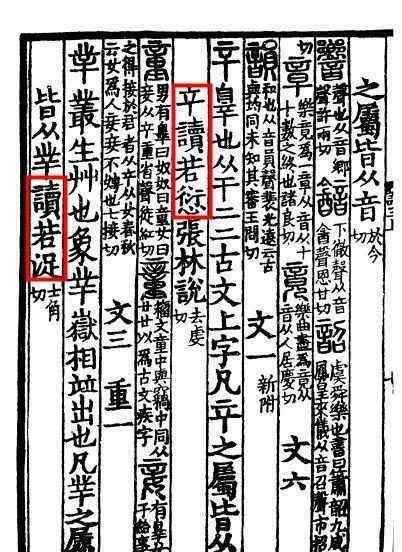 之屬皆从音 於今切
響 聲也从音鄉聲許兩切 韽 下徹聲从音酓聲恩甘切 韶 虞舜樂也書曰簫韶九成鳳皇來儀从音召聲市招
切 章 樂竟爲一章从音从十十數之終也諸良切 竟 樂曲盡爲竟从音从人居慶切 文六
韻 和也从音員聲裴光遠云古與均同未知其審王問切 文一 新附
䇂辠也从干二二古文上字凡䇂之屬皆从
䇂讀若愆張林說 去虔切
童 男有辠曰奴奴曰童女曰妾从䇂重省聲徒紅切 𥫍 籒文童中與竊中同从廿廿以爲古文疾字 妾 有辠女子給事
之得接於君者从䇂从女春秋云女爲人妾妾不娉也七接切 文三 重一
丵 叢生艸也象丵嶽相竝出也凡丵之屬
皆从丵讀若浞 士角切